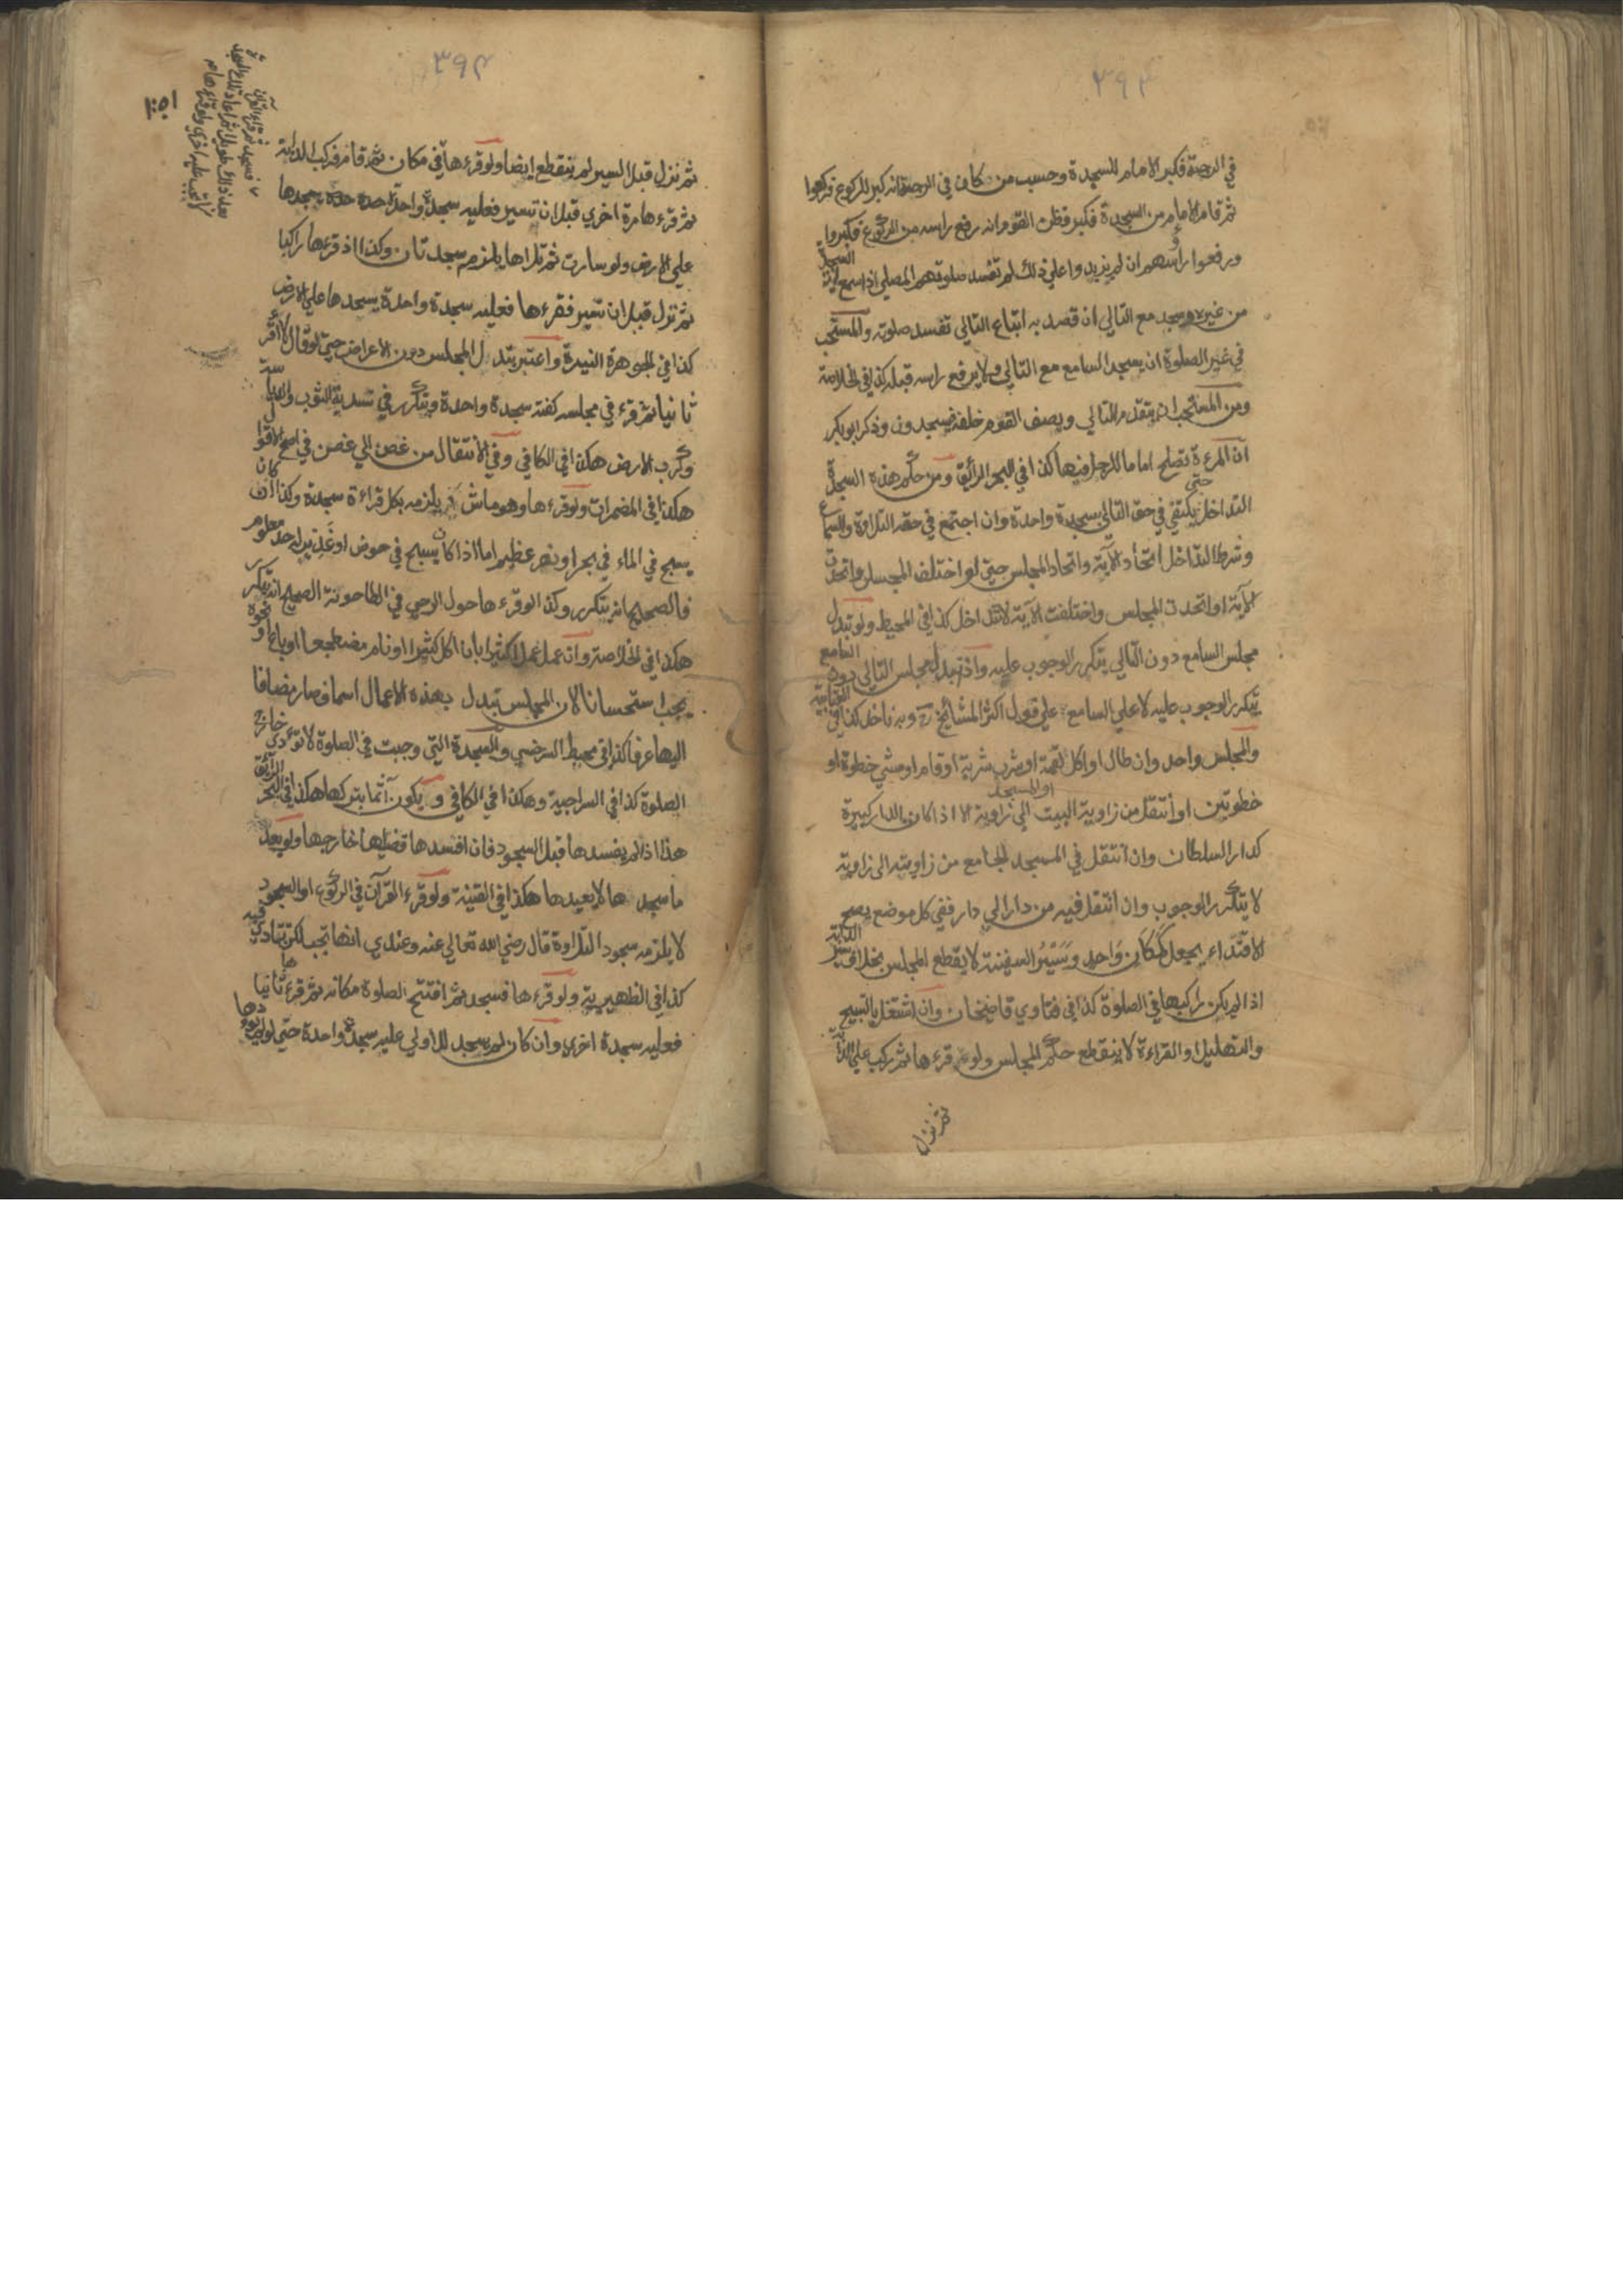 ٣٩٣
في الرحبة فكبر الامام للسجدة وحسب من كان في الرحبة انه كبر للركوع فركعوا
ثم قام الامام من السجدة فكبر فظن القوم انه رفع راسه من الركوع فكبروا
ورفعوا رؤسهم ان لم يزيدوا علي ذلك لم تفسد صلوتهم المصلي اذا سمع اية السجدة
من غيره وسجد مع التالي ان قصد به اتباع التالي تفسد صلوته والمستحب
في غير الصلوة ان يسجد السامع مع التالي ولا يرفع راسه قبله كذا في الخلاصة
ومن المستحب ان يتقدم التالي ويصف القوم خلفه فيسجدون وذكر ابو بكر
ان المرءة تصلح اماما للرجل فيها كذا في البحر الرائق ومن حكم هذه السجدة
التداخل حتي يكتفي في حق التالي بسجدة واحدة وان اجتمع في حقه التلاوة والسماع
وشرط التداخل اتحاد الآية واتحاد المجلس حتي لو اختلف المجلس واتحدت
الآية او اتحدت المجلس واختلفت الآية لا تتداخل كذا في المحيط ولو تبدل
مجلس السامع دون التالي يتكرر الوجوب عليه واذ تبدل مجلس التالي دون السامع
يتكرر الوجوب عليه لا علي السامع علي قول اكثر المشائخ رح وبه ناخذ كذا في العتابية
والمجلس واحد وان طال او اكل لقمة او شرب شربة او قام او مشي خطوة او
خطوتين او انتقل من زاوية البيت او المسجد الي زاوية الا اذا كان الدار كبيرة
كدار السلطان وان انتقل في المسجد الجامع من زاوية الى زاوية
لا يتكرر الوجوب وان انتقل فيه من دار الي دار ففي كل موضع يصح
الاقتداء يجعل كمكان واحد وسير السفينة لا يقطع المجلس بخلاف سير الدابة
اذا لم يكن راكبها في الصلوة كذا في فتاوي قاضيخان وان اشتغل بالتسبيح
والتهليل او القراءة لا ينقطع حكم المجلس ولو قرءها ثم ركب علي الدابة
ثم نزل
٣٩٤
ثم نزل قبل السير لم ينقطع ايضا ولو قرءها في مكان ثم قام فركب الدابة
ثم قرءها مرة اخري قبل ان تسير فعليه سجدة واحدة يسجدها
علي الارض ولو سارت ثم تلاها يلزم سجدتان وكذا اذ قرءها راكبا
ثم نزل قبل ان تسير فقرءها فعليه سجدة واحدة يسجدها علي الارض
كذا في الجوهرة النيرة واعتبر تبدل المجلس دون الاعراض حتي لو قال لا اقرء
ثانيا ثم قرء في مجلسه كفته سجدة واحدة ويتكرر في تسدية الثوب والدياسة
وكرب الارض هكذا في الكافي وفي الانتقال من غصن الي غصن في اصح الاقوال
هكذا في المضمرات ولو قرءها وهو ماش يلزمه بكل قراءة سجدة وكذا ان كان
يسبح في الماء في بحر او نهر عظيم اما اذا كان يسبح في حوض او غدير له حد معلوم
فالصحيح انه يتكرر وكذا لو قرءها حول الرحي في الطاحونة الصحيح انه يتكرر
هكذا في الخلاصة وان عمل عملا كثيرا بان اكل كثيرا او نام مضطجعا او باع او نحوه
يجب استحسانا لان المجلس تبدل بهذه الاعمال اسما فصار مضافا
اليها عرفا كذا في محيط السرخسي والسجدة التي وجبت في الصلوة لا تؤدي خارج
الصلوة كذا في السراجية وهكذا في الكافي ويكون آثما بتركها هكذا في البحر الرائق
هذا اذا لم يفسدها قبل السجود فان افسدها قضاها خارجها ولو بعد
ما سجدها لا يعيدها هكذا في القنية ولو قرء القرآن في الركوع او السجود
لا يلزمه سجود التلاوة قال رضي الله تعالي عنه وعندي انها تجب لكن تتادي فيه
كذا في الظهيرية ولو قرءها فسجد ثم افتتح الصلوة مكانه ثم قرءها ثانيا
فعليه سجدة اخري وان كان لم يسجد للاولي عليه سجدة واحدة حتي لو لم يؤدها